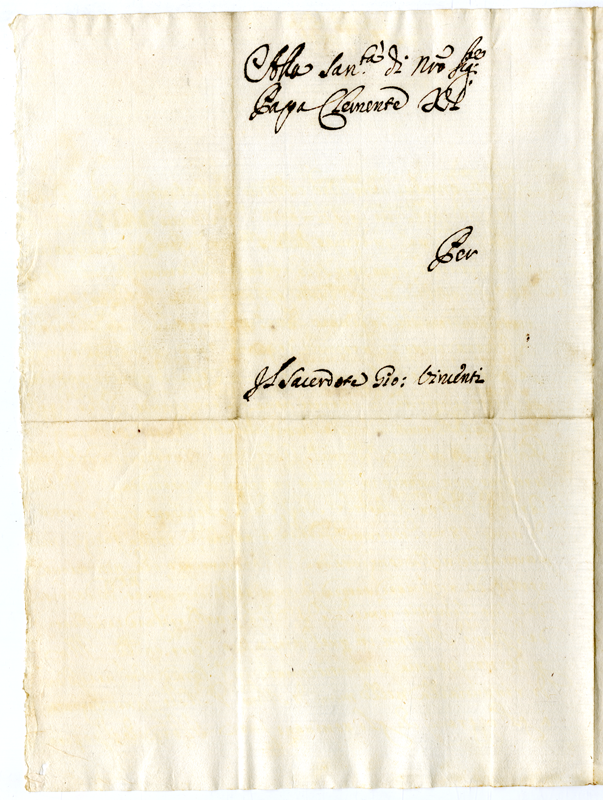 Alla San.tà di Nro Sig.re
Papa Clemente XI
Per
Il Sacerdote Gio: Vincenti